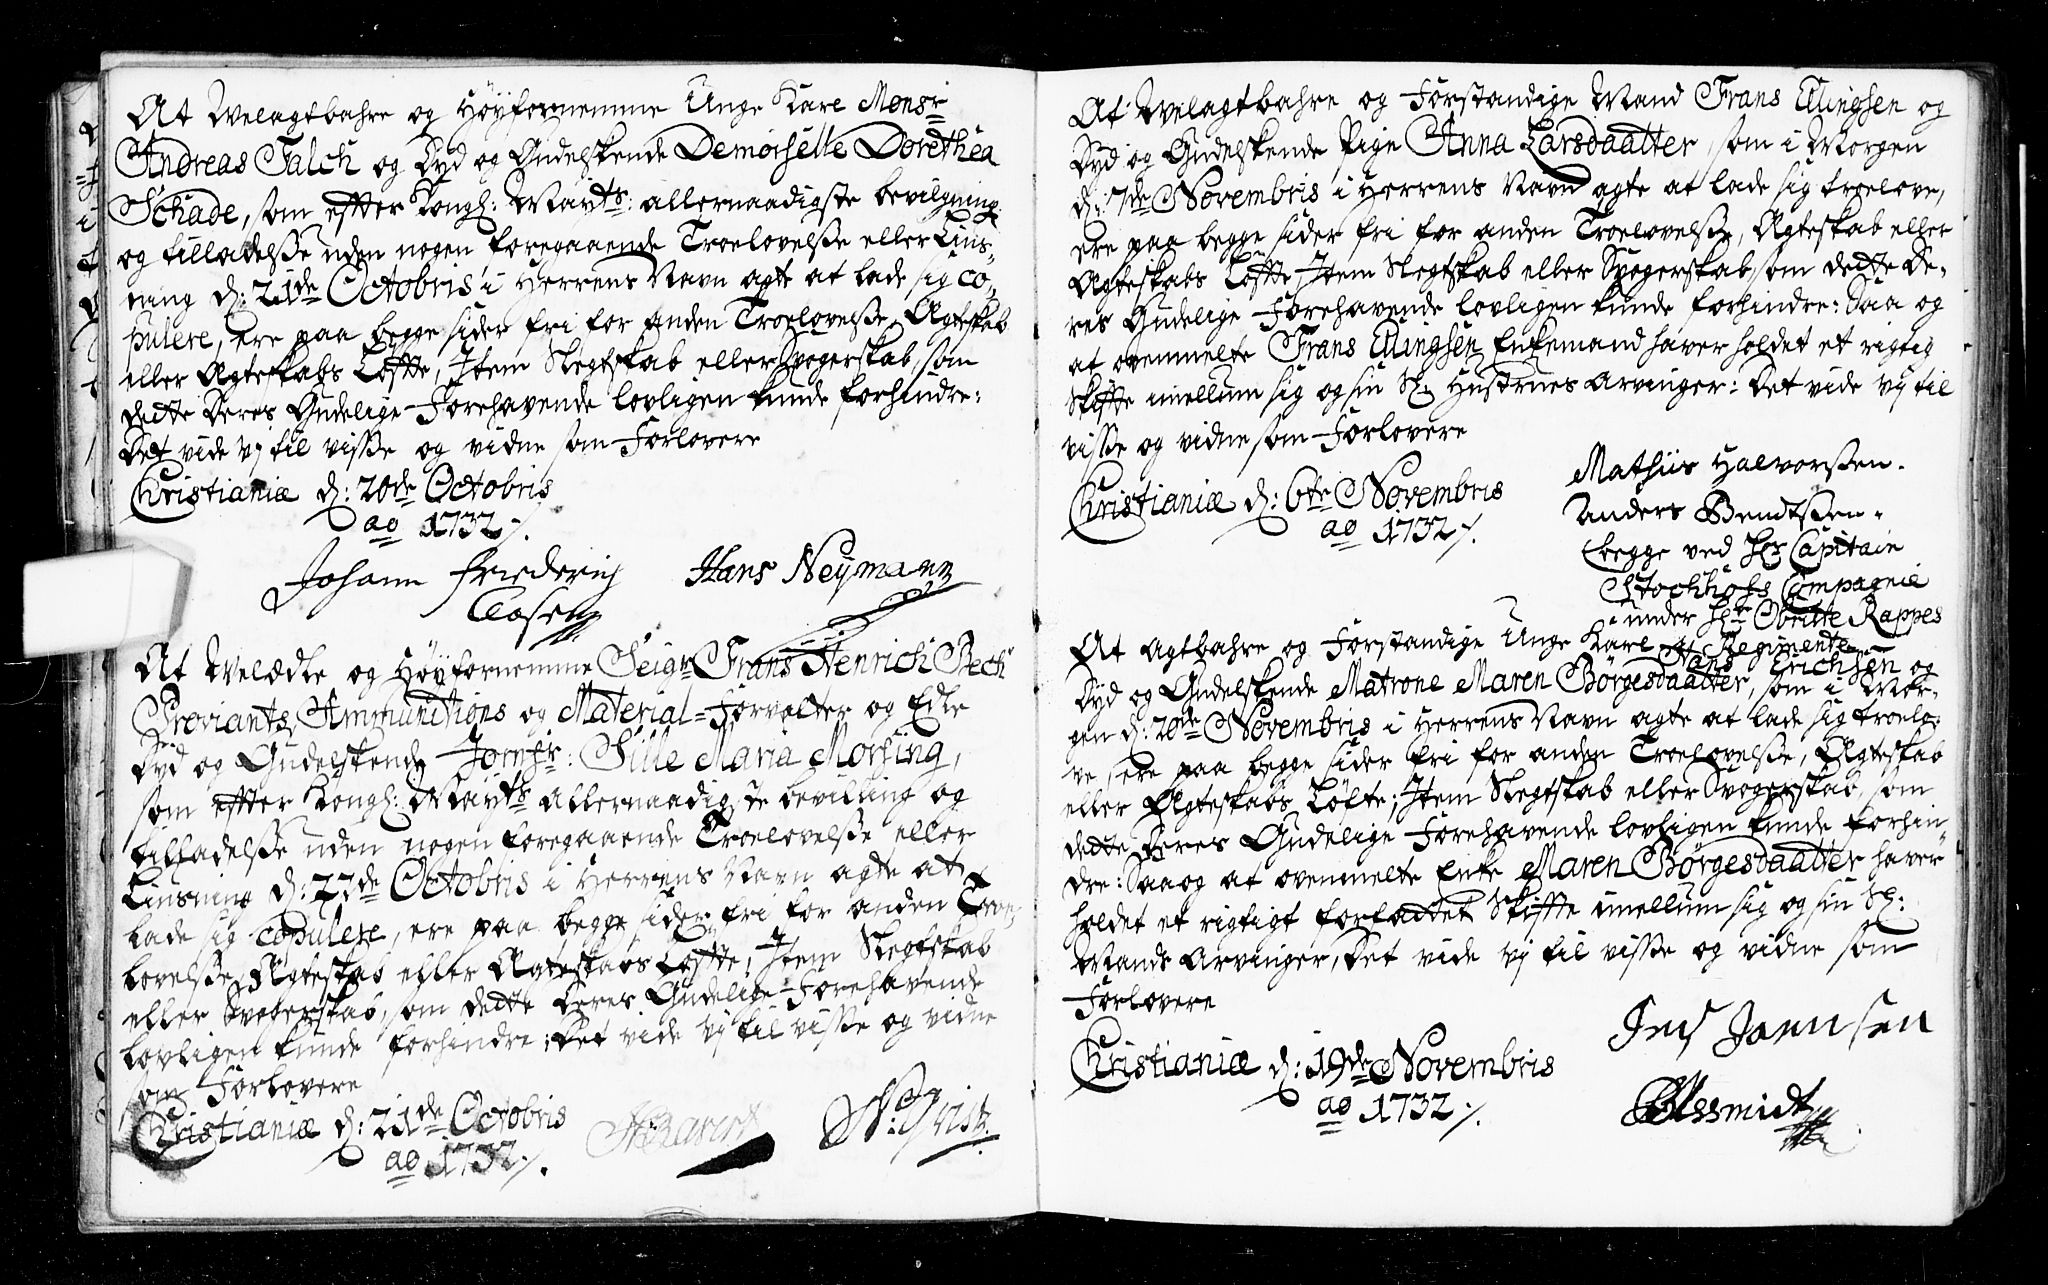 At Welagtbahre og Høyfornemme Unge Karl Monsr
Andreas Falch og Dyd og Gudelskende Demoiselle Dorethea
Schade, som effter Kongl: Maÿts: allernaadigste bevilgning
og tilladelsse uden nogen foregaaende Troelovelsse eller Liuß-
ning d: 21de Octobris i Herrens Navn agte at lade sig co-
pulere, ere paa begge sider fri for anden Troelovelsse, Ægteskab
eller Ægteskabs Løffte, Item Slegtskab eller Svogerskab, som
dette Deres Gudelige Forehavende lovligen kunde forhindre:
Det vide vj til visse og vidne som Forlovere
Christianiæ d: 20de Octobris
ao 1732 ./.
Johann Friederich Hans Neÿmann
Closen
At Welædle og Høyfornemme Seigr Frans Henrich Bech
Proviants, Ammunitions og Material-Forvalter og Edle
Dyd og Gudelskende Jomfr: Sille Maria Morsing,
som effter Kongl: Maÿts allernaadigste bevilling og
tilladelsse uden nogen foregaaende Troelovelsse eller
Liusning d: 22de Octobris i Herrens Navn agte at
lade sig copulere, ere paa begge sider fri for anden Troe-
lovelsse, Ægteskab eller Ægteskabs Løffte, Item Slegtskab
eller Svogerskab, som dette Deres Gudelige Forehavende
lovligen kunde forhindre; Det vide vj til visse og vidne
som Forlovere
Christianiæ d: 21de Octobris
ao 1732 ./.
At Welagtbahre og Forstandige Mand Frans Ellingsen og
Dyd og Gudelskende Pige Anna Larsdaatter, som i Morgen
d: 7de Novembris i Herrens Navn agte at lade sig troelove,
ere paa begge sider fri for anden Troelovelsse, Ægteskab eller
Ægteskabs Løffte, Item Slegtskab eller Svogerskab, som dette De-
res Gudelige Forehavende lovligen kunde forhindre: Saa og
at ovenmelte Frans Ellingsen Enkemand haver holdet et rigtig
Skiffte imellum sig og sin Sl: Hustrues Arvinger: Det vide vj til
visse og vidne som Forlovere
Christianiæ d: 6te Novembris
ao 1732 ./.
Mathiis Halvorssen.
Anders Bendtssen.
begge ved Hr Capitain
Stochhofs Compagnie
under Hr Obriste Rappes
Regimente
At Agtbahre og Forstandige Unge Karl Hans Erichsen og
Dyd og Gudelskende Matrone Maren Börgesdaatter, som i Mor-
gen d: 20de Novembris i Herrens Navn agte at lade sig troelo-
ve, ere paa begge sider fri for anden Troelovelsse, Ægteskab
eller Ægteskabs Løfte; Item Slegtskab eller Svogerskab, som
dette Deres Gudelige Forehavende lovligen kunde forhin-
dre: Saa og at ovenmelte Enke Maren Börgesdaatter haver
holdet et rigtigt forfattet Skiffte imellum sig og sin Sl:
Mands Arvinger, Det vide vj til visse og vidne som
Forlovere
Christianiæ d: 19de Novembris
ao 1732 ./.
Jens Jaensen